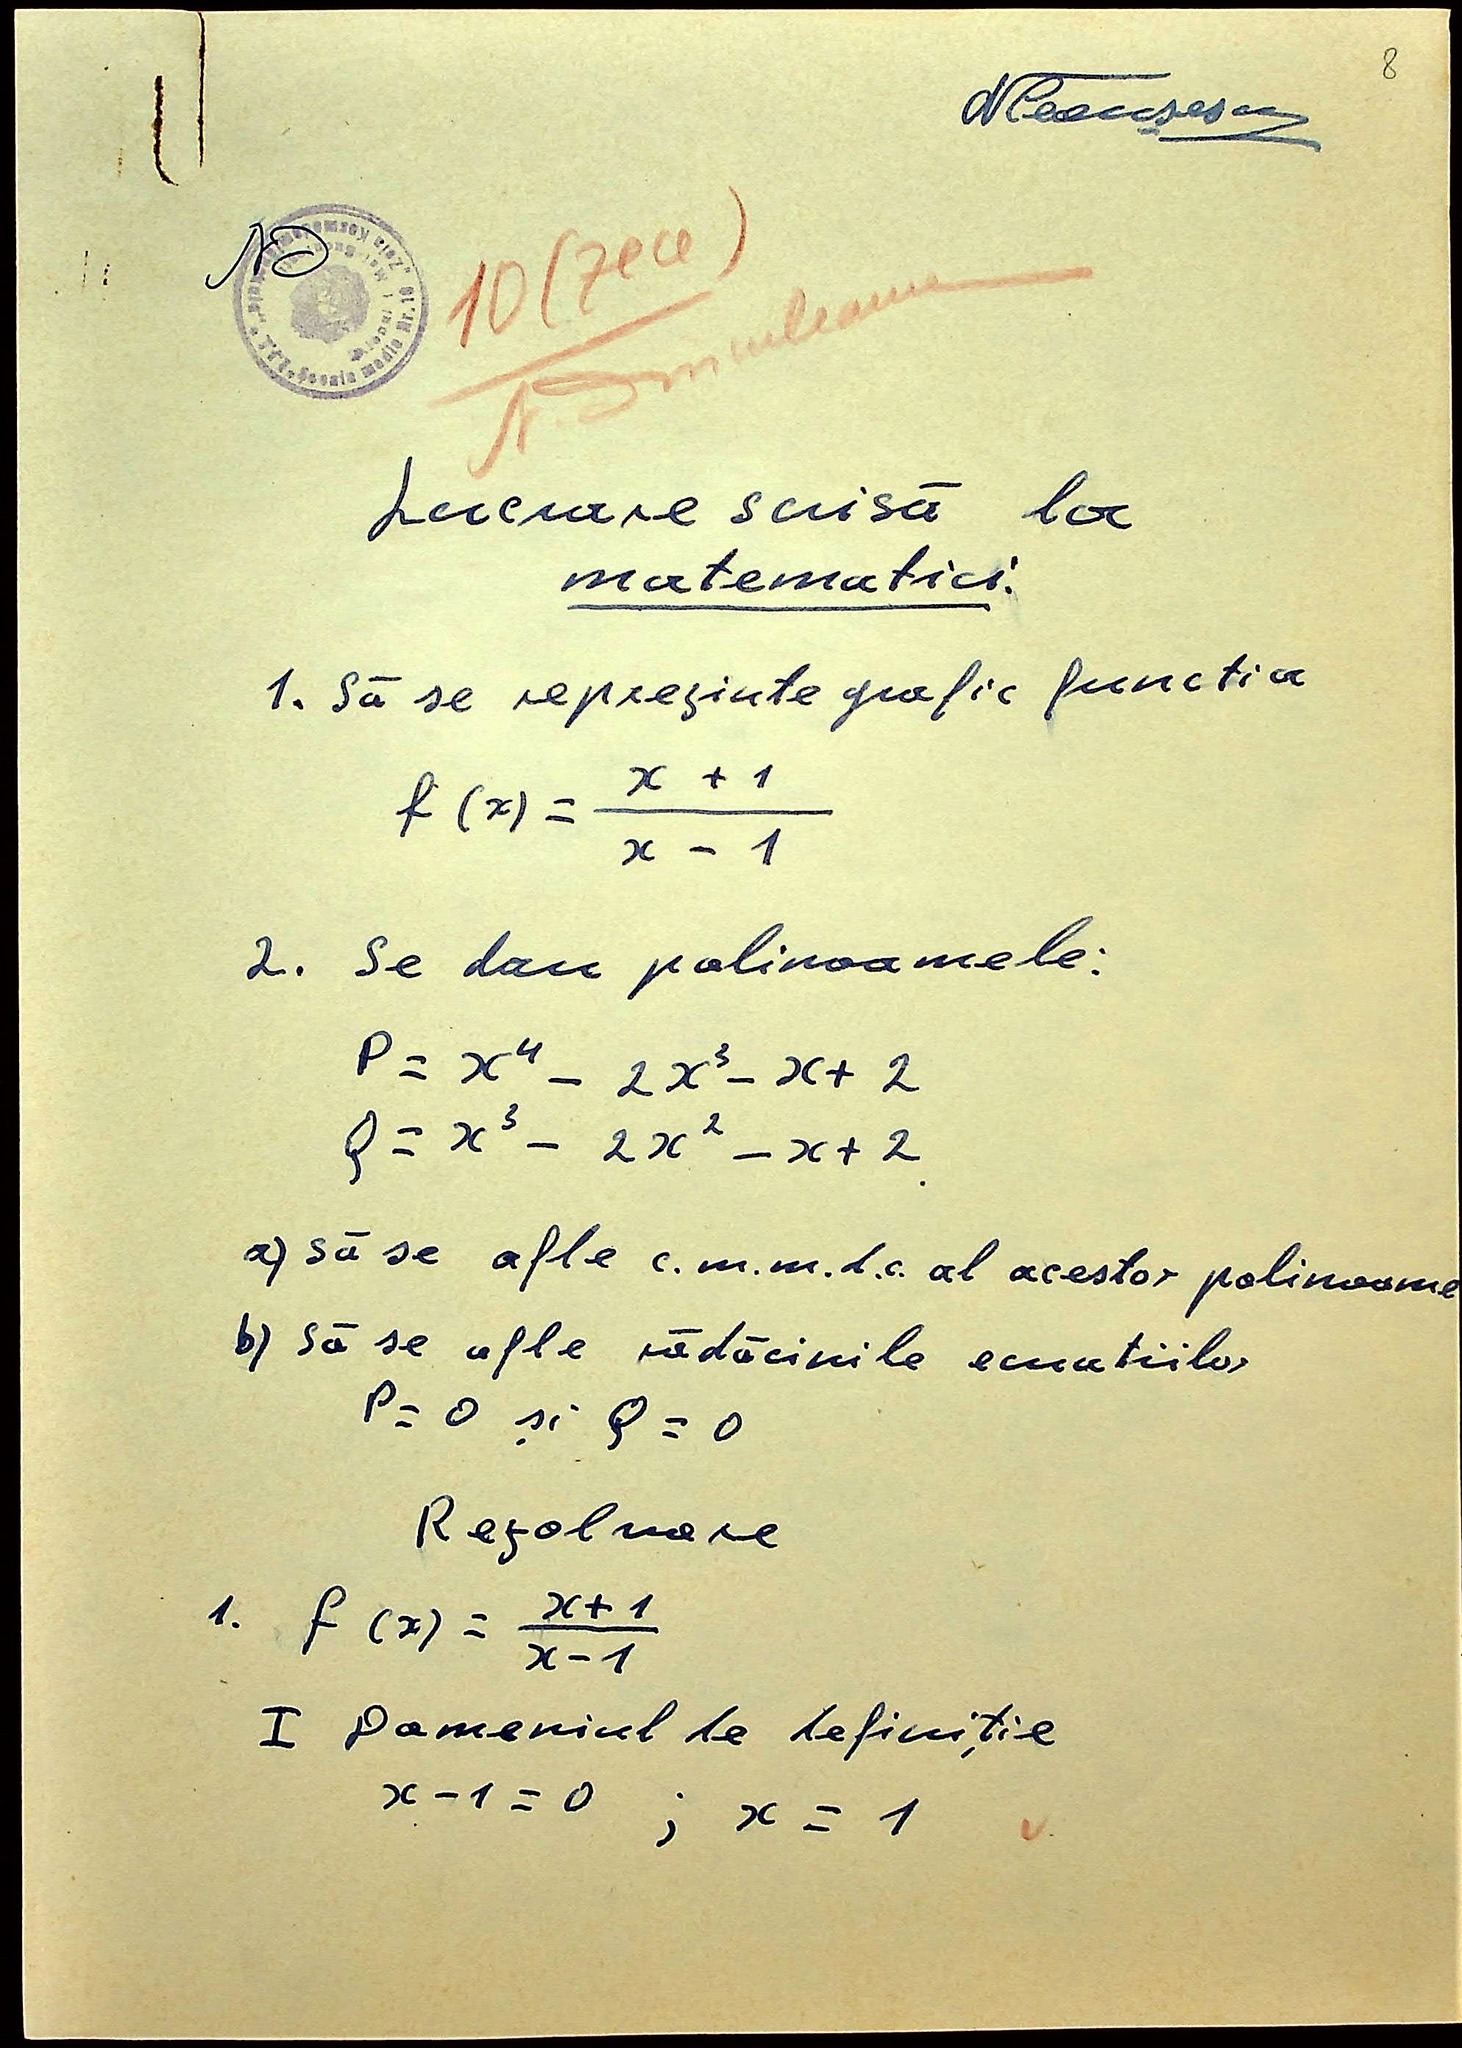 8
NCeaușescu
ND
10 (zece)
Lucrare scrisă la
matematici.
1. Să se reprezinte grafic functia
f (x) = x + 1 / x - 1
2. Se dau polinoamele:
P = x⁴ - 2x³ - x + 2
Q = x³ - 2x² - x + 2.
a) Să se afle c.m.m.d.c. al acestor polinoame
b) Să se afle rădăcinile ecuatiilor
P = 0 și Q = 0
Rezolvare
1. f (x) = x+1 / x-1
I Domeniul de definiție
x - 1 = 0 ; x = 1